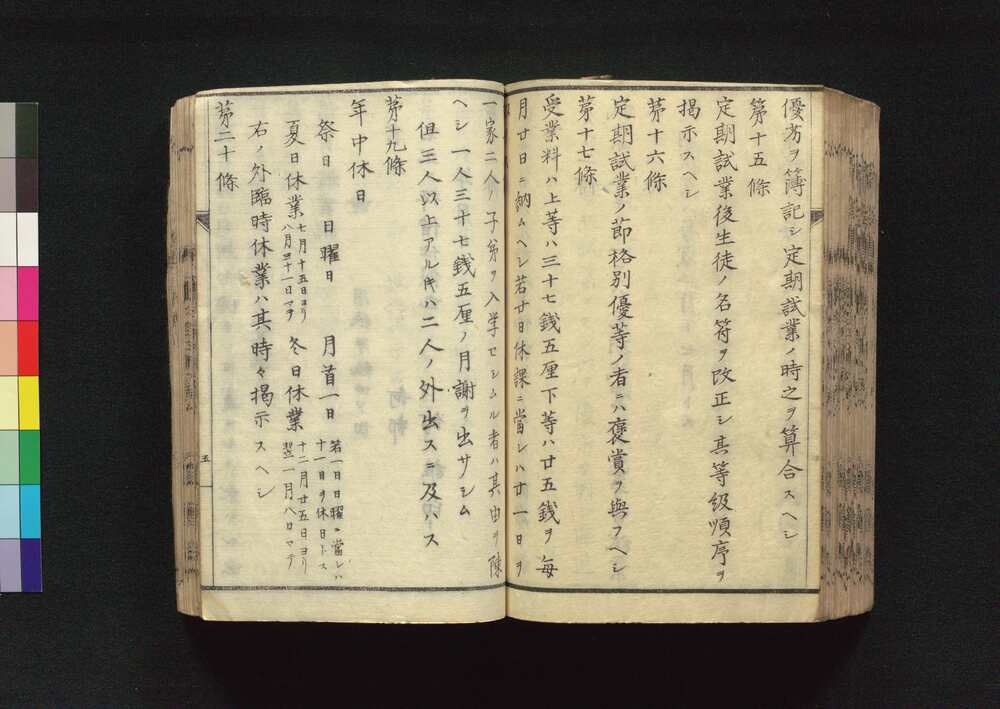 優劣ヲ簿記シ定期試業ノ時之ヲ算合スヘシ
第十五條
定期試業後生徒ノ名符ヲ改正シ其等級順序ヲ
掲示スヘシ
第十六條
定期試業ノ節格別優等ノ者ニハ褒賞ヲ與フヘシ
第十七條
受業料ハ上等ハ三十七銭五厘下等ハ廿五銭ヲ毎
月廿日ニ納ムヘシ若廿日休課ニ當レハ廿一日ヲ
一家二人ノ子弟ヲ入学セシムル者ハ其由ヲ陳
ヘシ一人三十七銭五厘ノ月謝ヲ出サシム
但三人以上アルキハ二人ノ外出スニ及ハス
第十九條
年中休日
祭日 日曜日 月首一日 若一日日曜ニ當レハ
十一日ヲ休日トス
夏日休業 七月十五日ヨリ
八月三十一日マテ 冬日休業 十二月廿五日ヨリ
翌一月八日マテ
右ノ外臨時休業ハ其時々掲示スヘシ
第二十條
五